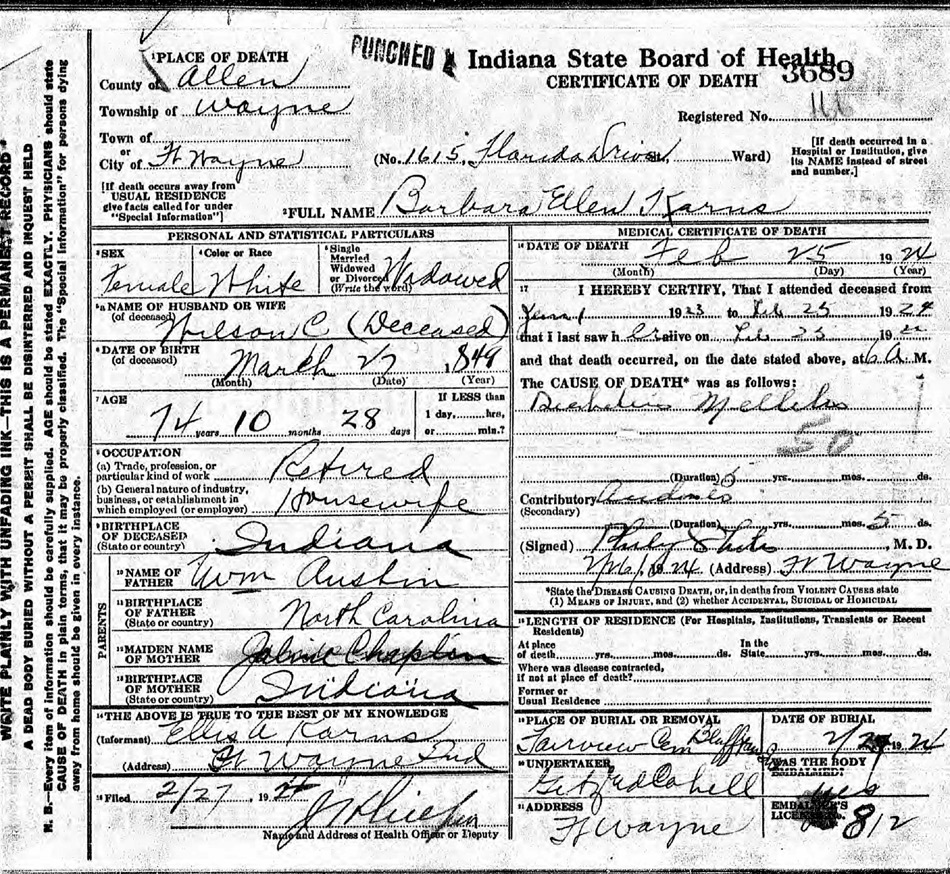 WRITE PLAINLY WITH UNFADING INK—THIS IS A PERMANENT RECORD
A DEAD BODY BURIED WITHOUT A PERMIT SHALL BE DISINTERRED AND INQUEST HELD
N. B.—Every item of information should be carefully supplied. AGE should be stated EXACTLY. PHYSICIANS should state
CAUSE OF DEATH in plain terms, that it may be properly classified. The "Special Information" for persons dying
away from home should be given in every instance.
PUNCHED
Indiana State Board of Health
CERTIFICATE OF DEATH
3689
Registered No. 166
1 PLACE OF DEATH
County of Allen
Township of Wayne
Town of
or
City of Ft Wayne
(No. 1615, Florida Drive St., Ward)
[If death occurred in a
Hospital or Institution, give
its NAME instead of street
and number.]
[If death occurs away from
USUAL RESIDENCE
give facts called for under
"Special Information"]
2 FULL NAME Barbara Ellen Karns
PERSONAL AND STATISTICAL PARTICULARS
3 SEX
Female
4 Color or Race
White
5 Single
Married
Widowed
or Divorced
(Write the word)
Widowed
5a NAME OF HUSBAND OR WIFE
(of deceased)
Wilson C (Deceased)
6 DATE OF BIRTH
(of deceased)
March 27, 1849
(Month) (Date) (Year)
7 AGE
74 years 10 months 28 days
If LESS than
1 day, hrs.
or min.?
8 OCCUPATION
(a) Trade, profession, or
particular kind of work Retired
(b) General nature of industry,
business, or establishment in
which employed (or employer) Housewife
9 BIRTHPLACE
OF DECEASED
(State or country) Indiana
PARENTS
10 NAME OF
FATHER Wm Austin
11 BIRTHPLACE
OF FATHER
(State or country) North Carolina
12 MAIDEN NAME
OF MOTHER Chaplin
13 BIRTHPLACE
OF MOTHER
(State or country) Indiana
14 THE ABOVE IS TRUE TO THE BEST OF MY KNOWLEDGE
(Informant) Ellis A Karns
(Address) Ft Wayne Ind
15 Filed 2/27, 1924
Name and Address of Health Officer or Deputy
MEDICAL CERTIFICATE OF DEATH
16 DATE OF DEATH Feb 25 1924
(Month) (Day) (Year)
17 I HEREBY CERTIFY, That I attended deceased from
1923 to Feb 25 1924
that I last saw her alive on Feb 25 19
and that death occurred, on the date stated above, at 6 A. M.
The CAUSE OF DEATH* was as follows:
Diabetis Mellitus
50
(Duration) 5 yrs. mos. ds.
Contributory
(Secondary)
(Duration) yrs. mos. 5 ds.
(Signed) , M. D.
2/26, 1924 (Address) Ft Wayne
*State the DISEASE CAUSING DEATH, or, in deaths from VIOLENT CAUSES state
(1) MEANS OF INJURY, and (2) whether ACCIDENTAL, SUICIDAL or HOMICIDAL
18 LENGTH OF RESIDENCE (For Hospitals, Institutions, Transients or Recent
Residents)
At place
of death yrs. mos. ds.
In the
State yrs. mos. ds.
Where was disease contracted,
if not at place of death?
Former or
Usual Residence
19 PLACE OF BURIAL OR REMOVAL
Fairview Cem Bluffton
DATE OF BURIAL
2/27 1924
20 UNDERTAKER
Getz and Cahill
WAS THE BODY
EMBALMED?
yes
21 ADDRESS
Ft Wayne
EMBALMER'S
LICENSE No. 812